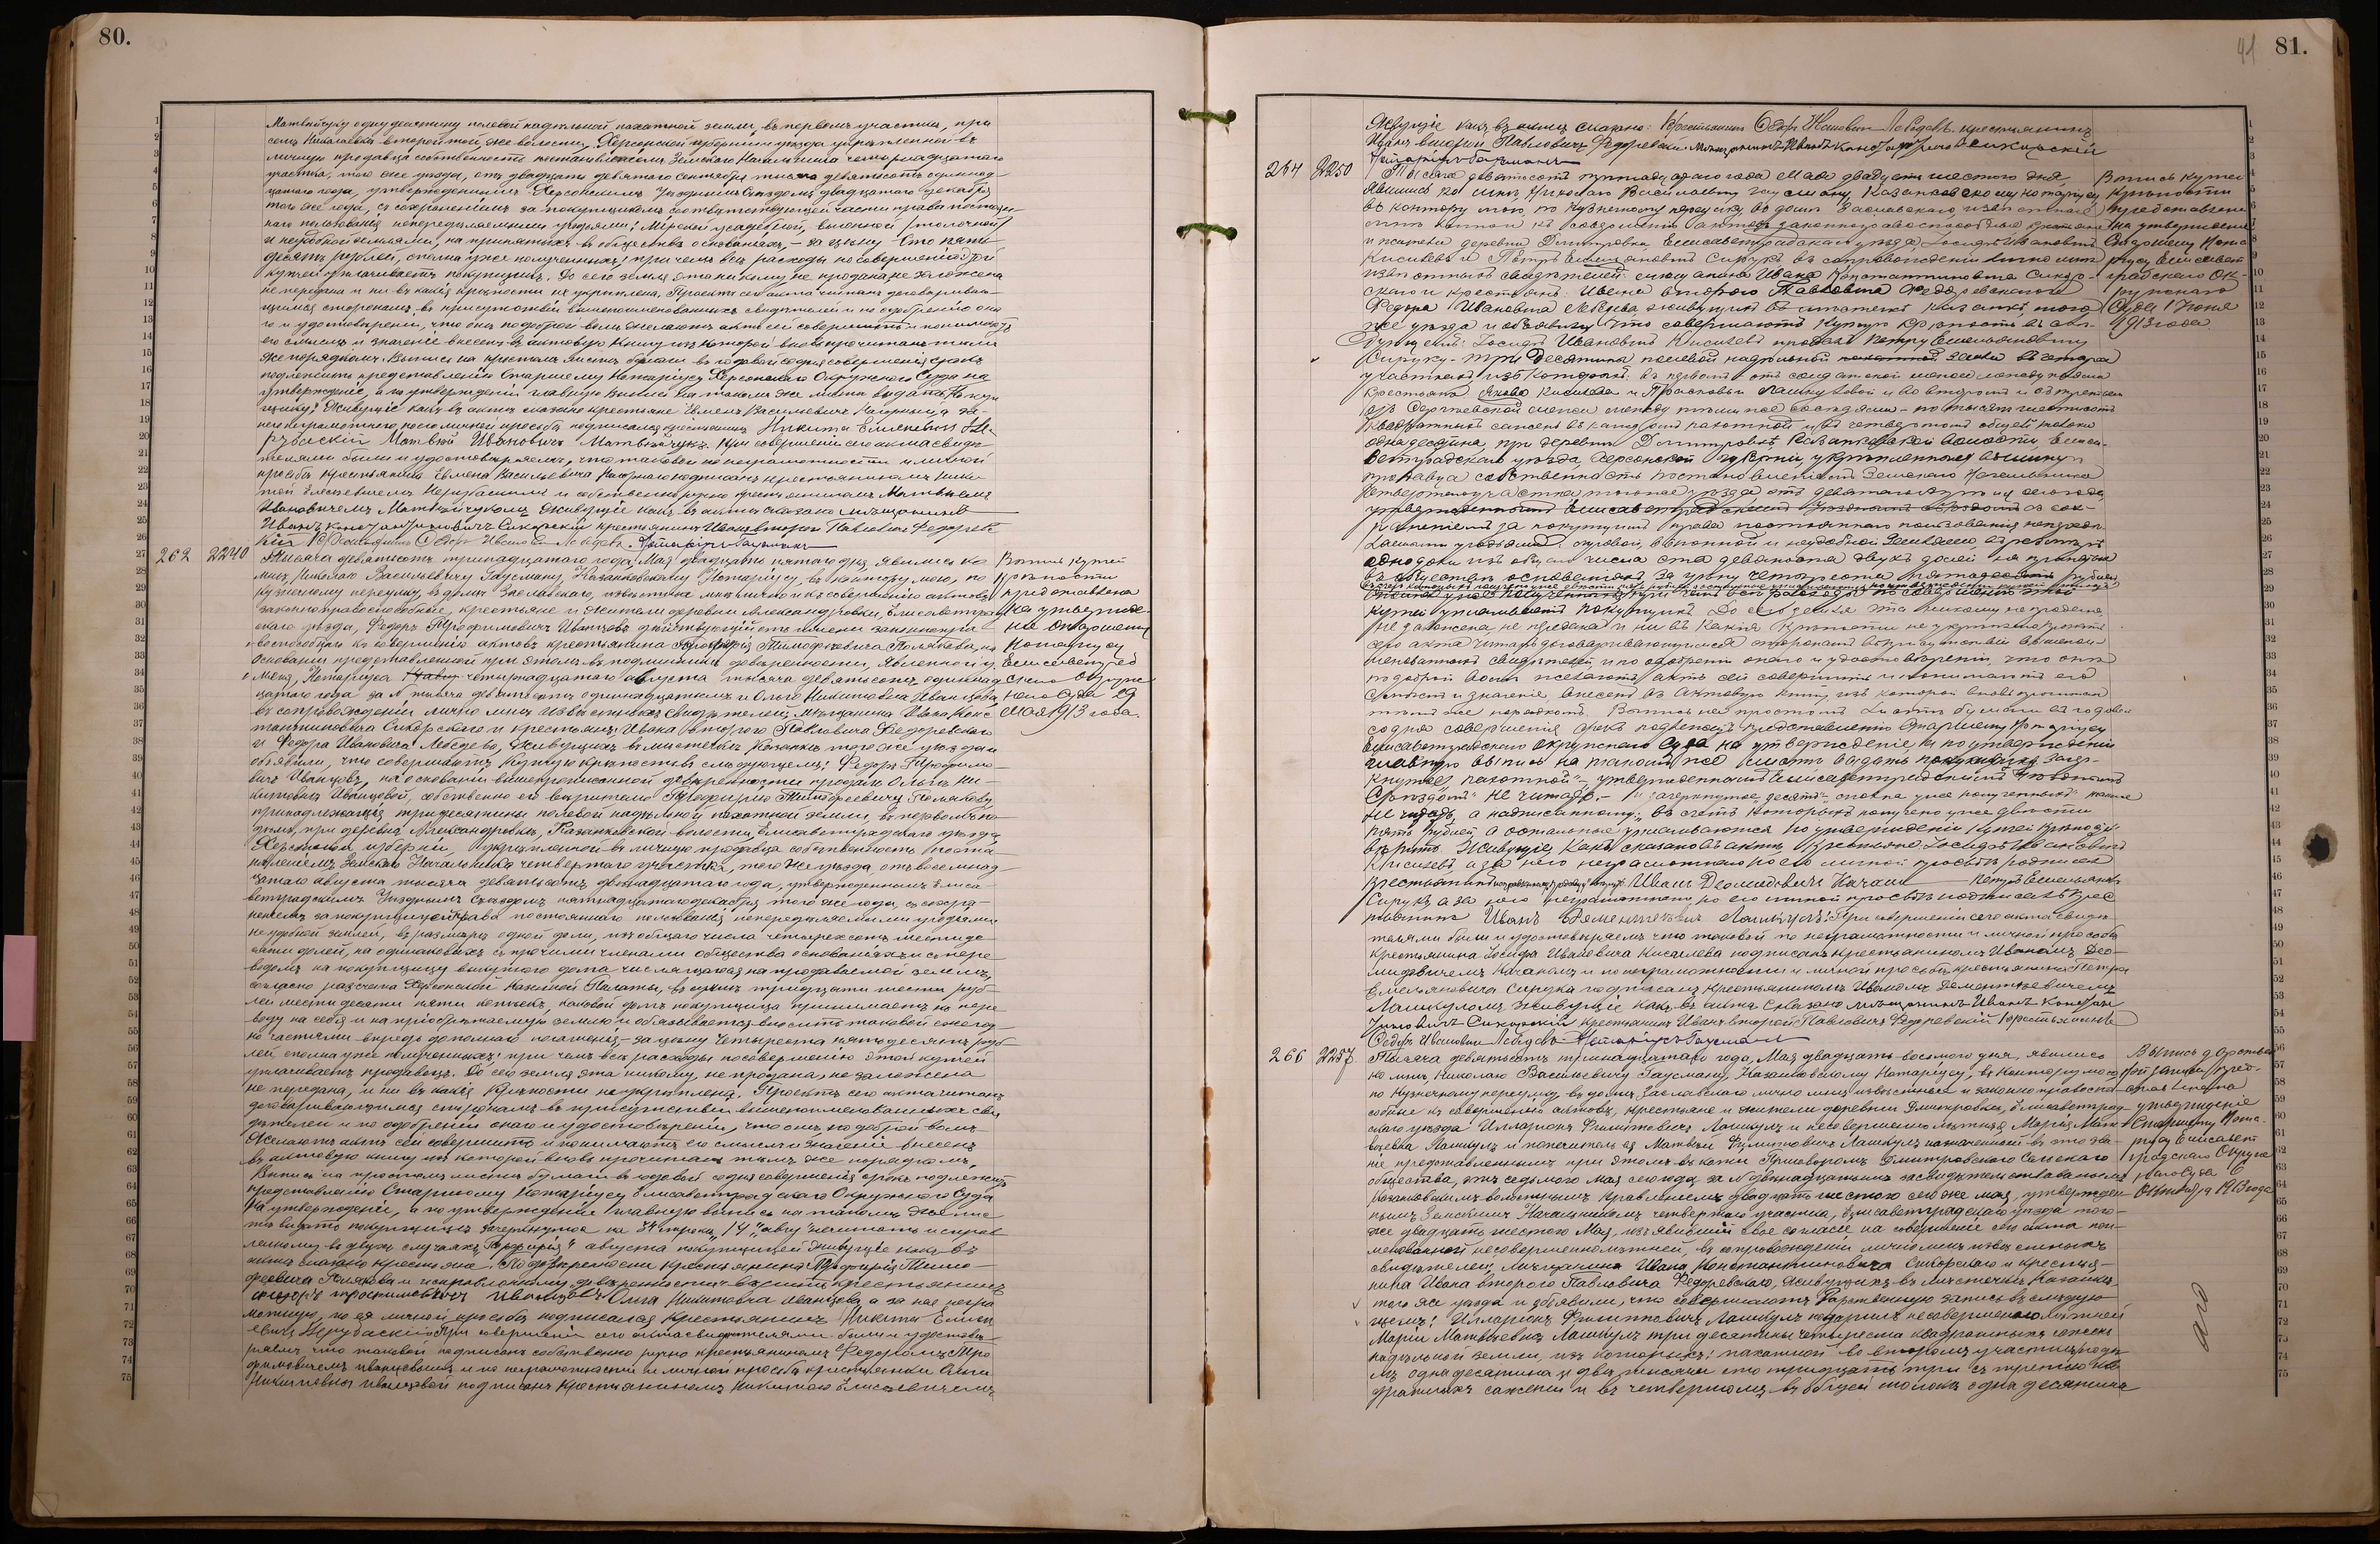 80.
Матвейчуку одну десятину полевой надѣльной пахатной земли, въ первомъ участкѣ, при
селѣ Николаевка второй той же волости, Херсонской губерніи и уѣзда укрѣпленной въ
личную продавца собственность постановленіемъ Земскаго Начальника четырнадцатаго
участка, того же уѣзда, отъ двадцать девятаго Сентября тысяча девятьсотъ одиннад-
цатаго года, утвержденнымъ Херсонскимъ Уѣзднымъ Съѣздомъ двадцатаго декабря
того же года, съ сохраненіемъ за покупщикомъ соотвѣтствующей части права постоян-
наго пользованія непередѣляемыми угодьями: Мірской усадебной, выгонной (толочной)
и неудобной землями, на принятыхъ въ обществѣ основаніяхъ, – за цѣну Сто пять-
десятъ рублей, сполна уже полученныхъ; при чемъ всѣ расходы по совершенію этой
купчей уплачиваетъ покупщикъ. До сего земля эта никому не продана, не заложена
не передана и ни въ какія крѣпости не укрѣплена. Проектъ сего акта читанъ договариваю-
щимся сторонамъ въ присутствіи вышепоименованныхъ свидѣтелей и по одобренію она-
го и удостовѣреніи, что они по доброй волѣ желаютъ актъ сей совершить и понимаютъ
его смыслъ и значеніе внесенъ въ актовую книгу изъ которой вновь прочитанъ тѣмъ
же порядкомъ. Выпись на простомъ листѣ бумаги въ годовой со дня совершенія срокъ
подлежитъ представленію Старшему Нотаріусу Херсонскаго Окружнаго Суда на
утвержденіе, а по утвержденіи главную выпись на такомъ же листѣ выдать Покуп-
щику. Живущіе какъ въ актѣ сказано крестьяне Евменъ Васильевичъ а за
него неграмотнаго по его личной просьбѣ подписался крестьянинъ Никита Елисеевичъ Не-
рубаскій Матвѣй Ивановичъ Матвейчукъ. При совершеніи сего акта свидѣ-
телями были и удостовѣряемъ, что таковой по неграмотности и личной
просьбѣ крестьянина Евмена Васильевича подписанъ крестьяниномъ Ники-
той Елисеевичемъ Нерубаскимъ и собственноручно крестьяниномъ Матвѣемъ
Ивановичемъ Матвейчукомъ. Живущіе какъ въ актѣ сказано мѣщанинъ
Иванъ Константиновичъ Сикорскій крестьянинъ Иванъ второй Павловичъ Федорев-
кій Крестьянинъ Ѳедоръ Ивановъ Лебедевъ. Нотаріусъ Гаусманъ
262 2240 Тысяча девятьсотъ тринадцатаго года, Мая двадцать пятаго дня, явились ко
мнѣ, Николаю Васильевичу Гаусману, Казанковскому Нотаріусу, въ контору мою, по
Кузнечному переулку, въ домѣ Заславскаго, извѣстные мнѣ лично и къ совершенію актовъ
законно правоспособные, крестьяне и жители деревни Александровки, Елисаветград-
скаго уѣзда, Федоръ Трофимовичъ Иванцовъ дѣйствующій отъ имени законно пра-
воспособнаго къ совершенію актовъ крестьянина Порфирія Тимофеевича Полякова, на
основаніи представленной при этомъ въ подлинникѣ довѣренности, явленной у
меня, Нотаріуса четырнадцатаго августа тысяча девятьсотъ одиннад-
цатаго года за № тысяча девятьсотъ одиннадцатымъ и Ольга Никитовна Иванцова,
въ сопровожденіи лично мнѣ извѣстныхъ свидѣтелей, мѣщанина Ивана Конс-
тантиновича Сикорскаго и крестьянъ: Ивана второго Павловича Федоревскаго
и Федора Ивановича Лебедева, живущихъ въ мѣстечкѣ Казанкѣ того же уѣзда и
объявили, что совершаютъ Купчую крѣпость въ слѣдующемъ: Федоръ Трофимо-
вичъ Иванцовъ, на основаніи вышепрописанной довѣренности продалъ Ольгѣ Ни-
китовнѣ Иванцовой, собственно его вѣрителю Порфирію Тимофеевичу Полякову
принадлежащія три десятины полевой надѣльной пахотной земли, въ первомъ по-
дѣлѣ, при деревнѣ Александровкѣ, Казанковской волости, Елисаветградскаго уѣзда
Херсонской губерніи, укрѣпленной въ личную продавца собственность поста-
новленіемъ Земскаго Начальника четвертаго участка, того же уѣзда, отъ восемнад-
цатаго августа тысяча девятьсотъ двѣнадцатаго года, утвержденнымъ Елиса-
ветградскимъ Уѣзднымъ Съѣздомъ пятнадцатаго декабря того же года, съ сохра-
неніемъ за покупщицей права постояннаго пользованія непередѣляемыми угодьями
неудобной землей, въ размѣрѣ одной доли, изъ общаго числа четырехсотъ шестиде-
сяти долей, на одинаковыхъ съ прочими членами общества основаніяхъ и съ пере-
водомъ на покупщицу выкупного долга числящагося на продаваемой землѣ,
согласно разсчета Херсонской Казенной Палаты, въ суммѣ тридцати шести руб-
лей шестидесяти пяти копѣекъ, каковой долгъ покупщица принимаетъ къ пере-
воду на себя и на пріобрѣтаемую землю и обязывается вносить таковой ежегод-
но частями впредь до полнаго погашенія, – за цѣну Четыреста пятьдесятъ руб-
лей сполна уже полученныхъ; при чемъ всѣ расходы по совершенію этой купчей
уплачиваетъ продавецъ. До сего земля эта никому, не продана, не заложена
не передана, и ни въ какія крѣпости не укрѣплена. Проектъ сего акта читанъ
договаривающимся сторонамъ въ присутствіи вышепоименованныхъ сви-
дѣтелей и по одобреніи онаго и удостовѣреніи, что они по доброй волѣ
желаютъ актъ сей совершить и понимаютъ его смыслъ и значеніе внесенъ
въ актовую книгу изъ которой вновь прочитанъ тѣмъ же порядкомъ.
Выпись на простомъ листѣ бумаги въ годовой со дня совершенія срокъ подлежитъ
представленію Старшему Нотаріусу Елисаветградскаго Окружнаго Суда
на утвержденіе, а по утвержденіи главную выпись на такомъ же лис-
тѣ выдать покупщицѣ. Зачеркнутое на 34 строкѣ нечитать и справ-
ленному въ двухъ случаяхъ „Порфирія“ августа покупщицей Живущіе какъ въ
актѣ сказано крестьяне. По довѣренности крестьянина Порфирія Тимо-
феевича Полякова и исправленному довѣренности крестьянинъ
Федоръ Трофимовичъ Иванцовъ Ольга Никитовна Иванцова а за нея негра-
мотную, по ея личной просьбѣ подписался крестьянинъ Никита Елисе-
евичъ Нерубаскій При совершеніи сего акта свидѣтелями были и удостовѣ-
ряемъ, что таковой подписанъ собственно ручно крестьяниномъ Федоромъ Тро-
фимовичемъ Иванцовымъ и по неграмотности и личной просьбѣ крестьянки Ольги
Никитовны Иванцовой подписанъ крестьяниномъ Никитою Елисеевичемъ
Выпись купчей
крѣпости
представлена
на утвержде-
ніе Старшему
Нотаріусу
Елисаветград
скаго Окруж
наго Суда 29
Мая 1913 года.
41 81.
Живущіе какъ въ актѣ сказано: Крестьянинъ Ѳедоръ Ивановъ Лебедевъ. крестьянинъ
Иванъ второй Павловичъ Федоревскій. Мѣщанинъ Иванъ Константиновичъ Сикорскій
Нотаріусъ Гаусманъ
264 2250 Тысяча девятьсотъ тринадцатаго года Мая двадцать шестого дня
явились ко мнѣ, Николаю Васильевичу Гаусману, Казанковскому Нотаріусу
въ контору мою, по Кузнечному переулку, въ домѣ Заславскаго, извѣстные
мнѣ лично и къ совершенію актовъ законно правоспособные крестьяне
и жители деревни Димитровки, Елисаветградскаго уѣзда, Іосифъ Ивановичъ
Киселевъ и Петръ Емельяновичъ Сирукъ въ сопровожденіи лично мнѣ
извѣстныхъ свидѣтелей: мѣщанина Ивана Константиновича Сикор-
скаго и крестьянъ: Ивана второго Павловича Федоревскаго и
Федора Ивановича Лебедева, живущихъ въ мѣстечкѣ Казанкѣ, того
же уѣзда и объявили, что совершаютъ купчую крѣпость въ слѣ-
дующемъ: Іосифъ Ивановичъ Киселевъ продалъ Петру Емельяновичу
Сируку – три десятины полевой надѣльной пахотной земли въ четырехъ
участкахъ изъ которыхъ: въ первомъ отъ солдатской межи между полями
крестьянъ Якова Киселева и Прасковьи Лашкуловой и во второмъ и въ третьемъ
отъ Сергѣевской межи между тѣми же сосѣдями – по тысячѣ шестьсотъ
квадратныхъ саженъ въ каждомъ пахотной и въ четвертомъ общей толоки
одна десятина, при деревнѣ Димитровкѣ Казанковской волости, Елиса-
ветградскаго уѣзда, Херсонской губерніи, укрѣпленной въ личную
продавца собственность постановленіемъ Земскаго Начальника
четвертаго участка того же уѣзда, отъ девятаго сего года
утвержденнымъ Елисаветградскимъ Уѣзднымъ Съѣздомъ съ сох-
раненіемъ за покупщикомъ права постояннаго пользованія непередѣ-
ляемыми угодьями: луговой, выгонной и неудобной землями въ размѣрѣ
одной доли изъ общаго числа ста девяноста двухъ долей на принятыхъ
въ обществѣ основаніяхъ за цѣну Четыреста пятьдесятъ рублей
купчей уплачиваетъ покупщикъ. До сего земля эта никому не продана,
не заложена, не передана и ни въ какія крѣпости не укрѣплена Проектъ
сего акта читанъ договаривающимся сторонамъ въ присутствіи вышепои-
менованныхъ свидѣтелей, и по одобреніи онаго и удостовѣреніи, что они
по доброй волѣ желаютъ актъ сей совершить и понимаютъ его
смыслъ и значеніе внесенъ въ Актовую книгу, изъ которой вновь прочитанъ
тѣмъ же порядкомъ. Выпись на простомъ листѣ бумаги въ годовой
со дня совершенія срокъ подлежитъ представленію Старшему Нотаріусу
Елисаветградскаго Окружнаго Суда на утвержденіе, а по утвержденіи
главную выпись на такомъ же листѣ выдать покупщику. Зачер-
кнутое „пахотной“ – „утвержденнымъ Елисаветградскимъ Уѣзднымъ
Съѣздомъ“ не читать. – И зачеркнутое „десятъ“ „сполна уже полученныхъ“ также
не читать, а надписанному: „въ счетъ которыхъ получено уже двѣсти
пять рублей, а остальные уплачиваются по утвержденіи купчей крѣпости“
вѣрить. Живущіе, какъ сказано въ актѣ крестьяне: Іосифъ Ивановичъ
Киселевъ а за него неграмотнаго по его личной просьбѣ подписался
крестьянинъ Иванъ Деомидовичъ Качанъ Петръ Емельяновичъ
Сирукъ а за него неграмотнаго, по его личной просьбѣ подписался крес-
тьянинъ Иванъ Дементіевичъ Лашкулъ: При совершеніи сего акта свидѣ-
телями были и удостовѣряемъ что таковой по неграмотности и личной просьбѣ
крестьянина Іосифа Ивановича Киселева подписанъ крестьяниномъ Иваномъ Део-
мидовичемъ Качаномъ и по неграмотности и личной просьбѣ крестьянина Петра
Емельяновича Сирука подписанъ крестьяниномъ Иваномъ Дементіевичемъ
Лашкуломъ Живущіе какъ въ актѣ сказано мѣщанинъ Иванъ Констан
тиновичъ Сикорскій крестьянинъ Иванъ второй Павловичъ Федоревскій Крестьянинъ
Ѳедоръ Ивановичъ Лебедевъ Нотаріусъ Гаусманъ
Выпись купчей
крѣпости
представлена
на утвержденіе
Старшему Нота
ріусу Елисавет
градскаго Ок-
ружнаго
Суда 1 Іюня
1913 года.
266 2257 Тысяча девятьсотъ тринадцатаго года, Мая двадцать восьмого дня, явились
ко мнѣ, Николаю Васильевичу Гаусману, Казанковскому Нотаріусу, въ контору мою
по Кузнечному переулку, въ домѣ Заславскаго лично мнѣ извѣстные и законно правоспо-
собные къ совершенію актовъ, крестьяне и жители деревни Димитровки, Елисаветград-
скаго уѣзда Илларіонъ Филиповичъ Лашкулъ и несовершеннолѣтняя Марія Матв-
ѣевна Лашкулъ и попечитель ея Матвѣй Филиповичъ Лашкулъ назначенный въ это зва-
ніе представленнымъ при этомъ въ копіи Приговоромъ Димитровскаго Сельскаго
общества, отъ седьмого мая сего года за № двѣнадцатымъ засвидѣтельствованнымъ
Казанковскимъ волостнымъ правленіемъ двадцать шестого сего же мая, утвержден-
нымъ Земскимъ Начальникомъ четвертаго участка, Елисаветградскаго уѣзда того
же двадцать шестого Мая, изъявившій свое согласіе на совершеніе сего акта поп-
менованной несовершеннолѣтней, въ сопровожденіи лично мнѣ извѣстныхъ
свидѣтелей, мѣщанина Ивана Константиновича Сикорскаго и крестья-
нина Ивана второго Павловича Федоревскаго, живущихъ въ мѣстечкѣ Казанкѣ
того же уѣзда и объявили, что совершаютъ Дарственную запись въ слѣдую-
щемъ: Илларіонъ Филипповичъ Лашкулъ подарилъ несовершеннолѣтней
Маріи Матвѣевнѣ Лашкулъ три десятины четыреста квадратныхъ сажень
надѣльной земли, изъ которыхъ: пахатной во второмъ участкѣ подѣ-
лѣ одна десятина и двѣ тысячи сто тридцать три съ третью ква-
дратныхъ сажени и въ четвертомъ въ общей толокѣ одна десятина
Выпись дарствен
ной записи пред-
ставлена на
утвержденіе
Старшему Нота-
ріусу Елисавет
градскаго Окруж
наго Суда 6
Октября 1913 года